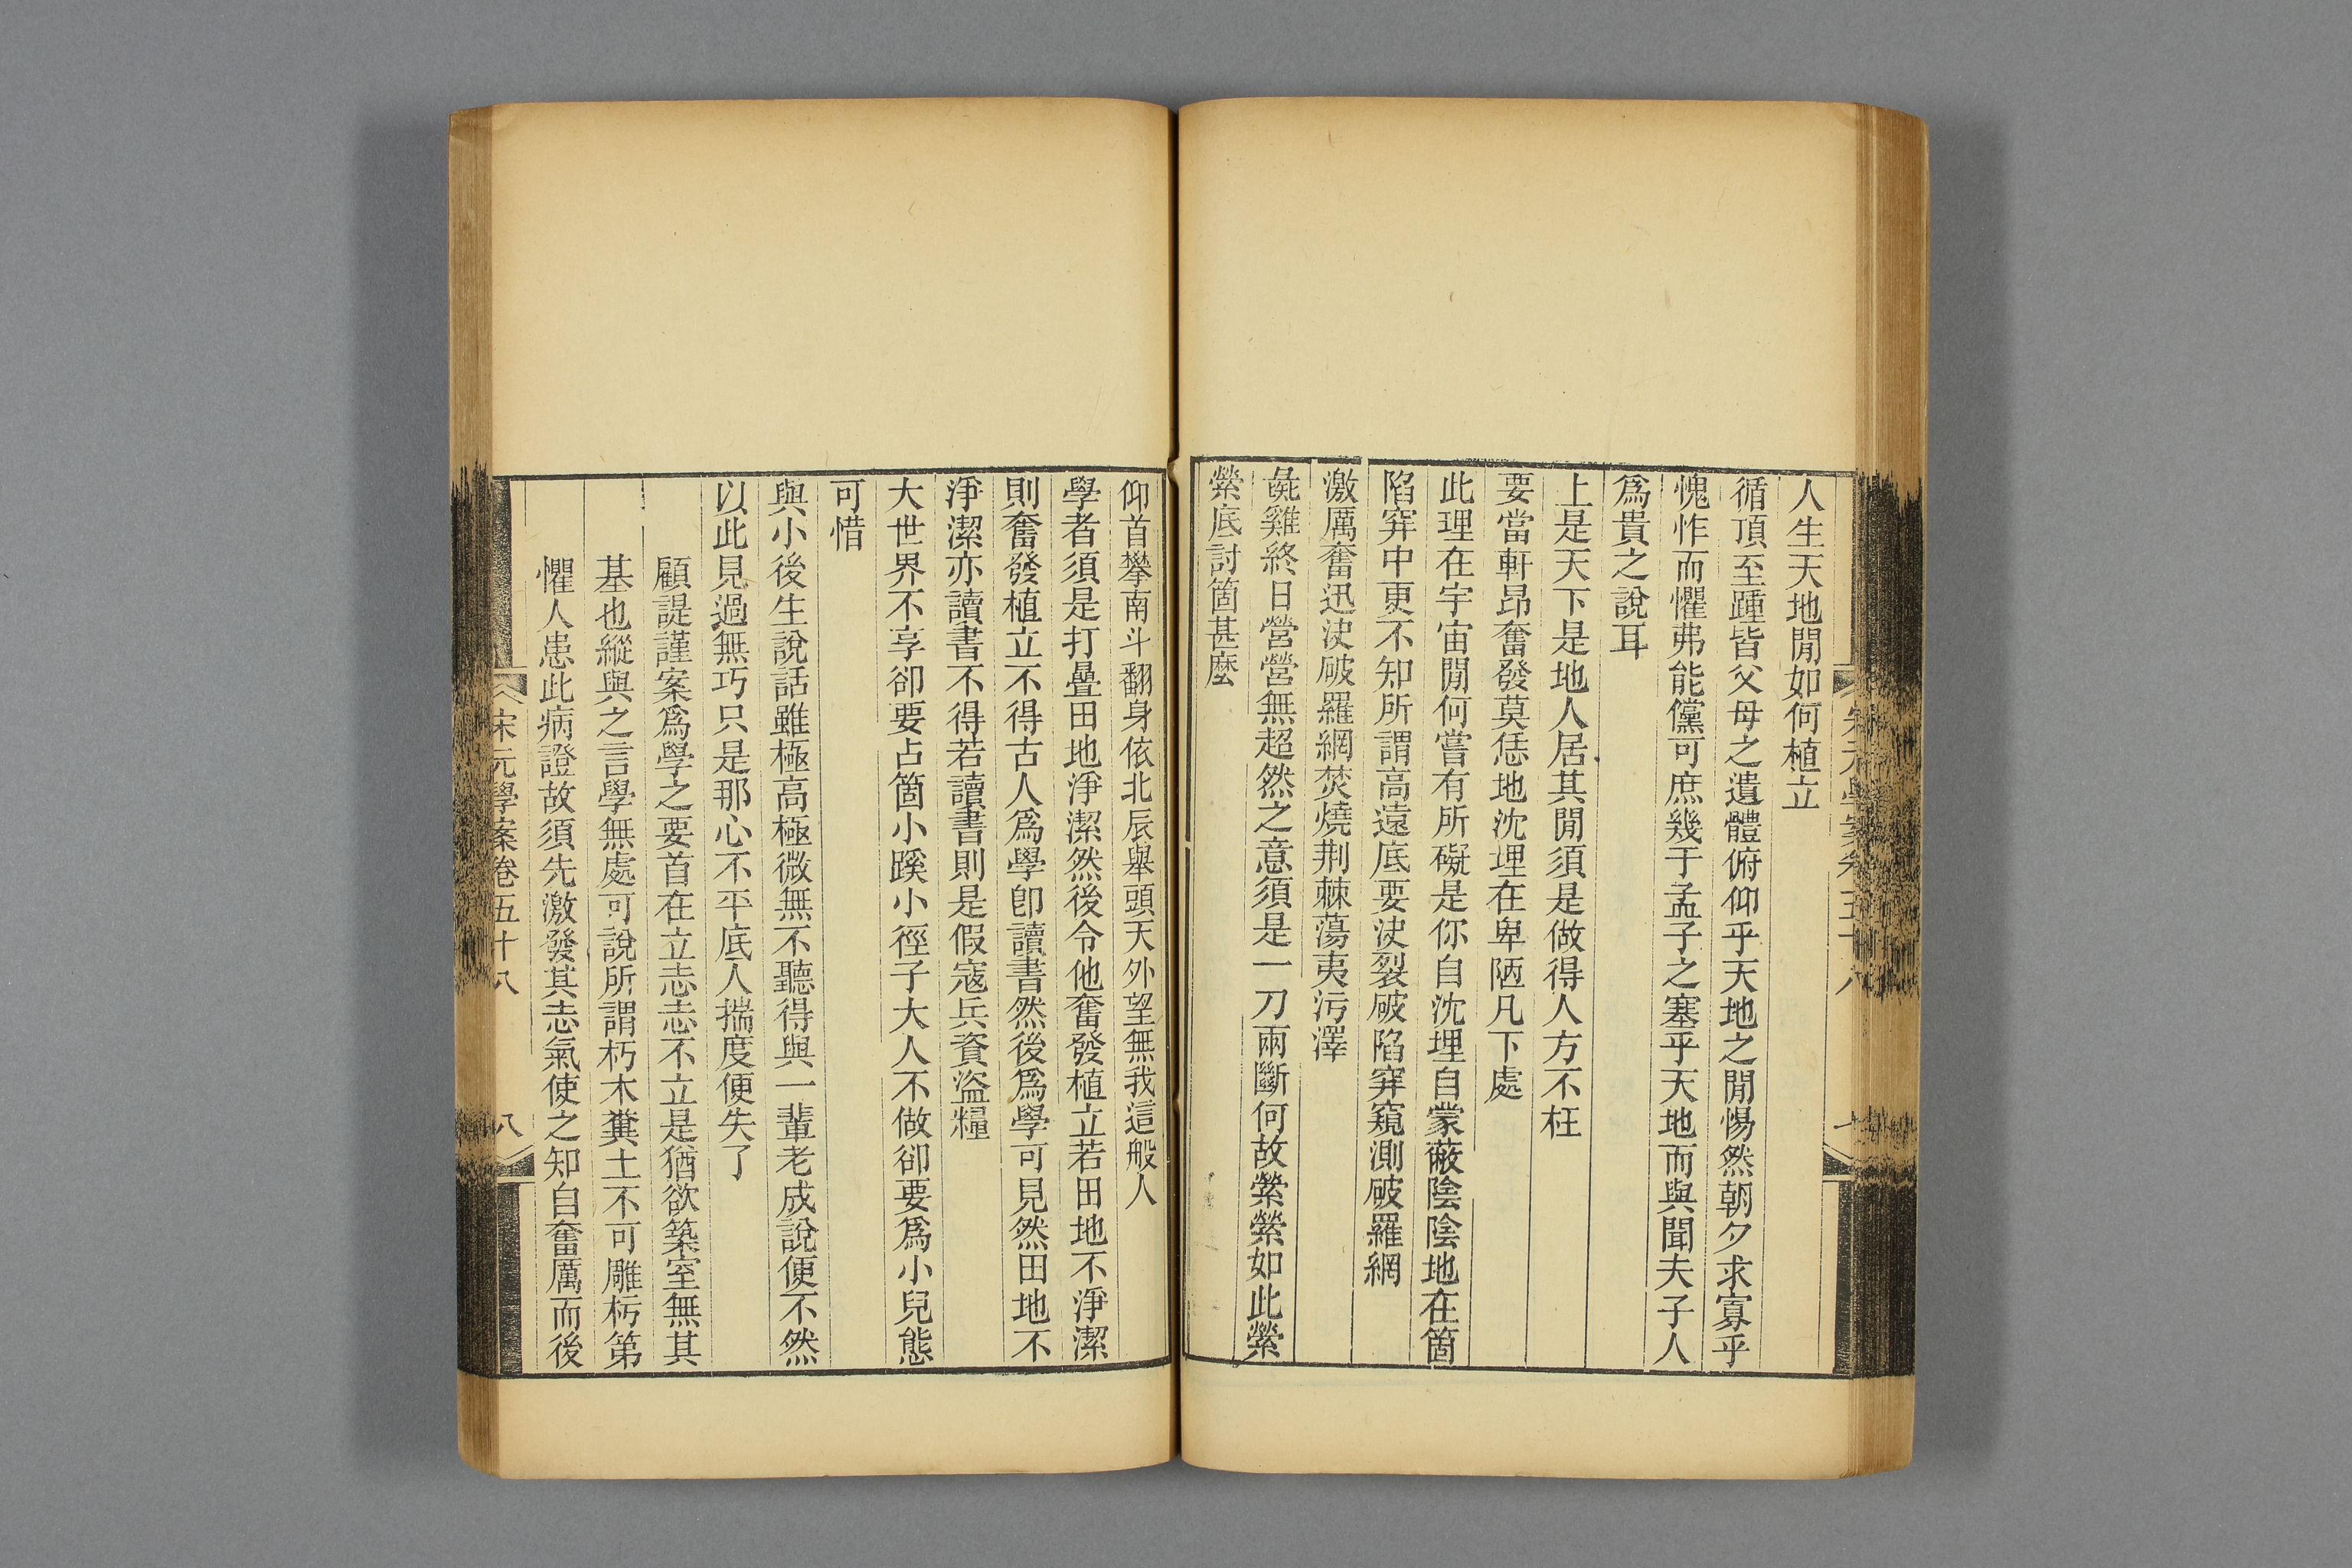 人生天地閒如何植立
循頂至踵皆父母之遺體俯仰乎天地之閒惕然朝夕求寡乎
愧怍而懼弗能儻可庶幾于孟子之塞乎天地而與聞夫子人
爲貴之說耳
上是天下是地人居其閒須是做得人方不枉
要當軒昂奮發莫恁地沈埋在卑陋凡下處
此理在宇宙閒何嘗有所礙是你自沈埋自蒙蔽陰陰地在箇
陷穽中更不知所謂高遠底要决裂破陷穽窺測破羅網
激厲奮迅决破羅網焚燒荆棘蕩夷污澤
彘雞終日營營無超然之意須是一刀兩斷何故縈縈如此縈
縈底討箇甚麼
仰首攀南斗翻身依北辰舉頭天外望無我這般人
學者須是打疊田地淨潔然後令他奮發植立若田地不淨潔
則奮發植立不得古人爲學卽讀書然後爲學可見然田地不
淨潔亦讀書不得若讀書則是假寇兵資盜糧
大世界不享卻要占箇小蹊小徑子大人不做卻要爲小兒態
可惜
與小後生說話雖極高極微無不聽得與一輩老成說便不然
以此見過無巧只是那心不平底人揣度便失了
顧諟謹案爲學之要首在立志志不立是猶欲築室無其
基也縱與之言學無處可說所謂朽木糞土不可雕杇第
懼人患此病證故須先激發其志氣使之知自奮厲而後
宋元學案卷五十八
八